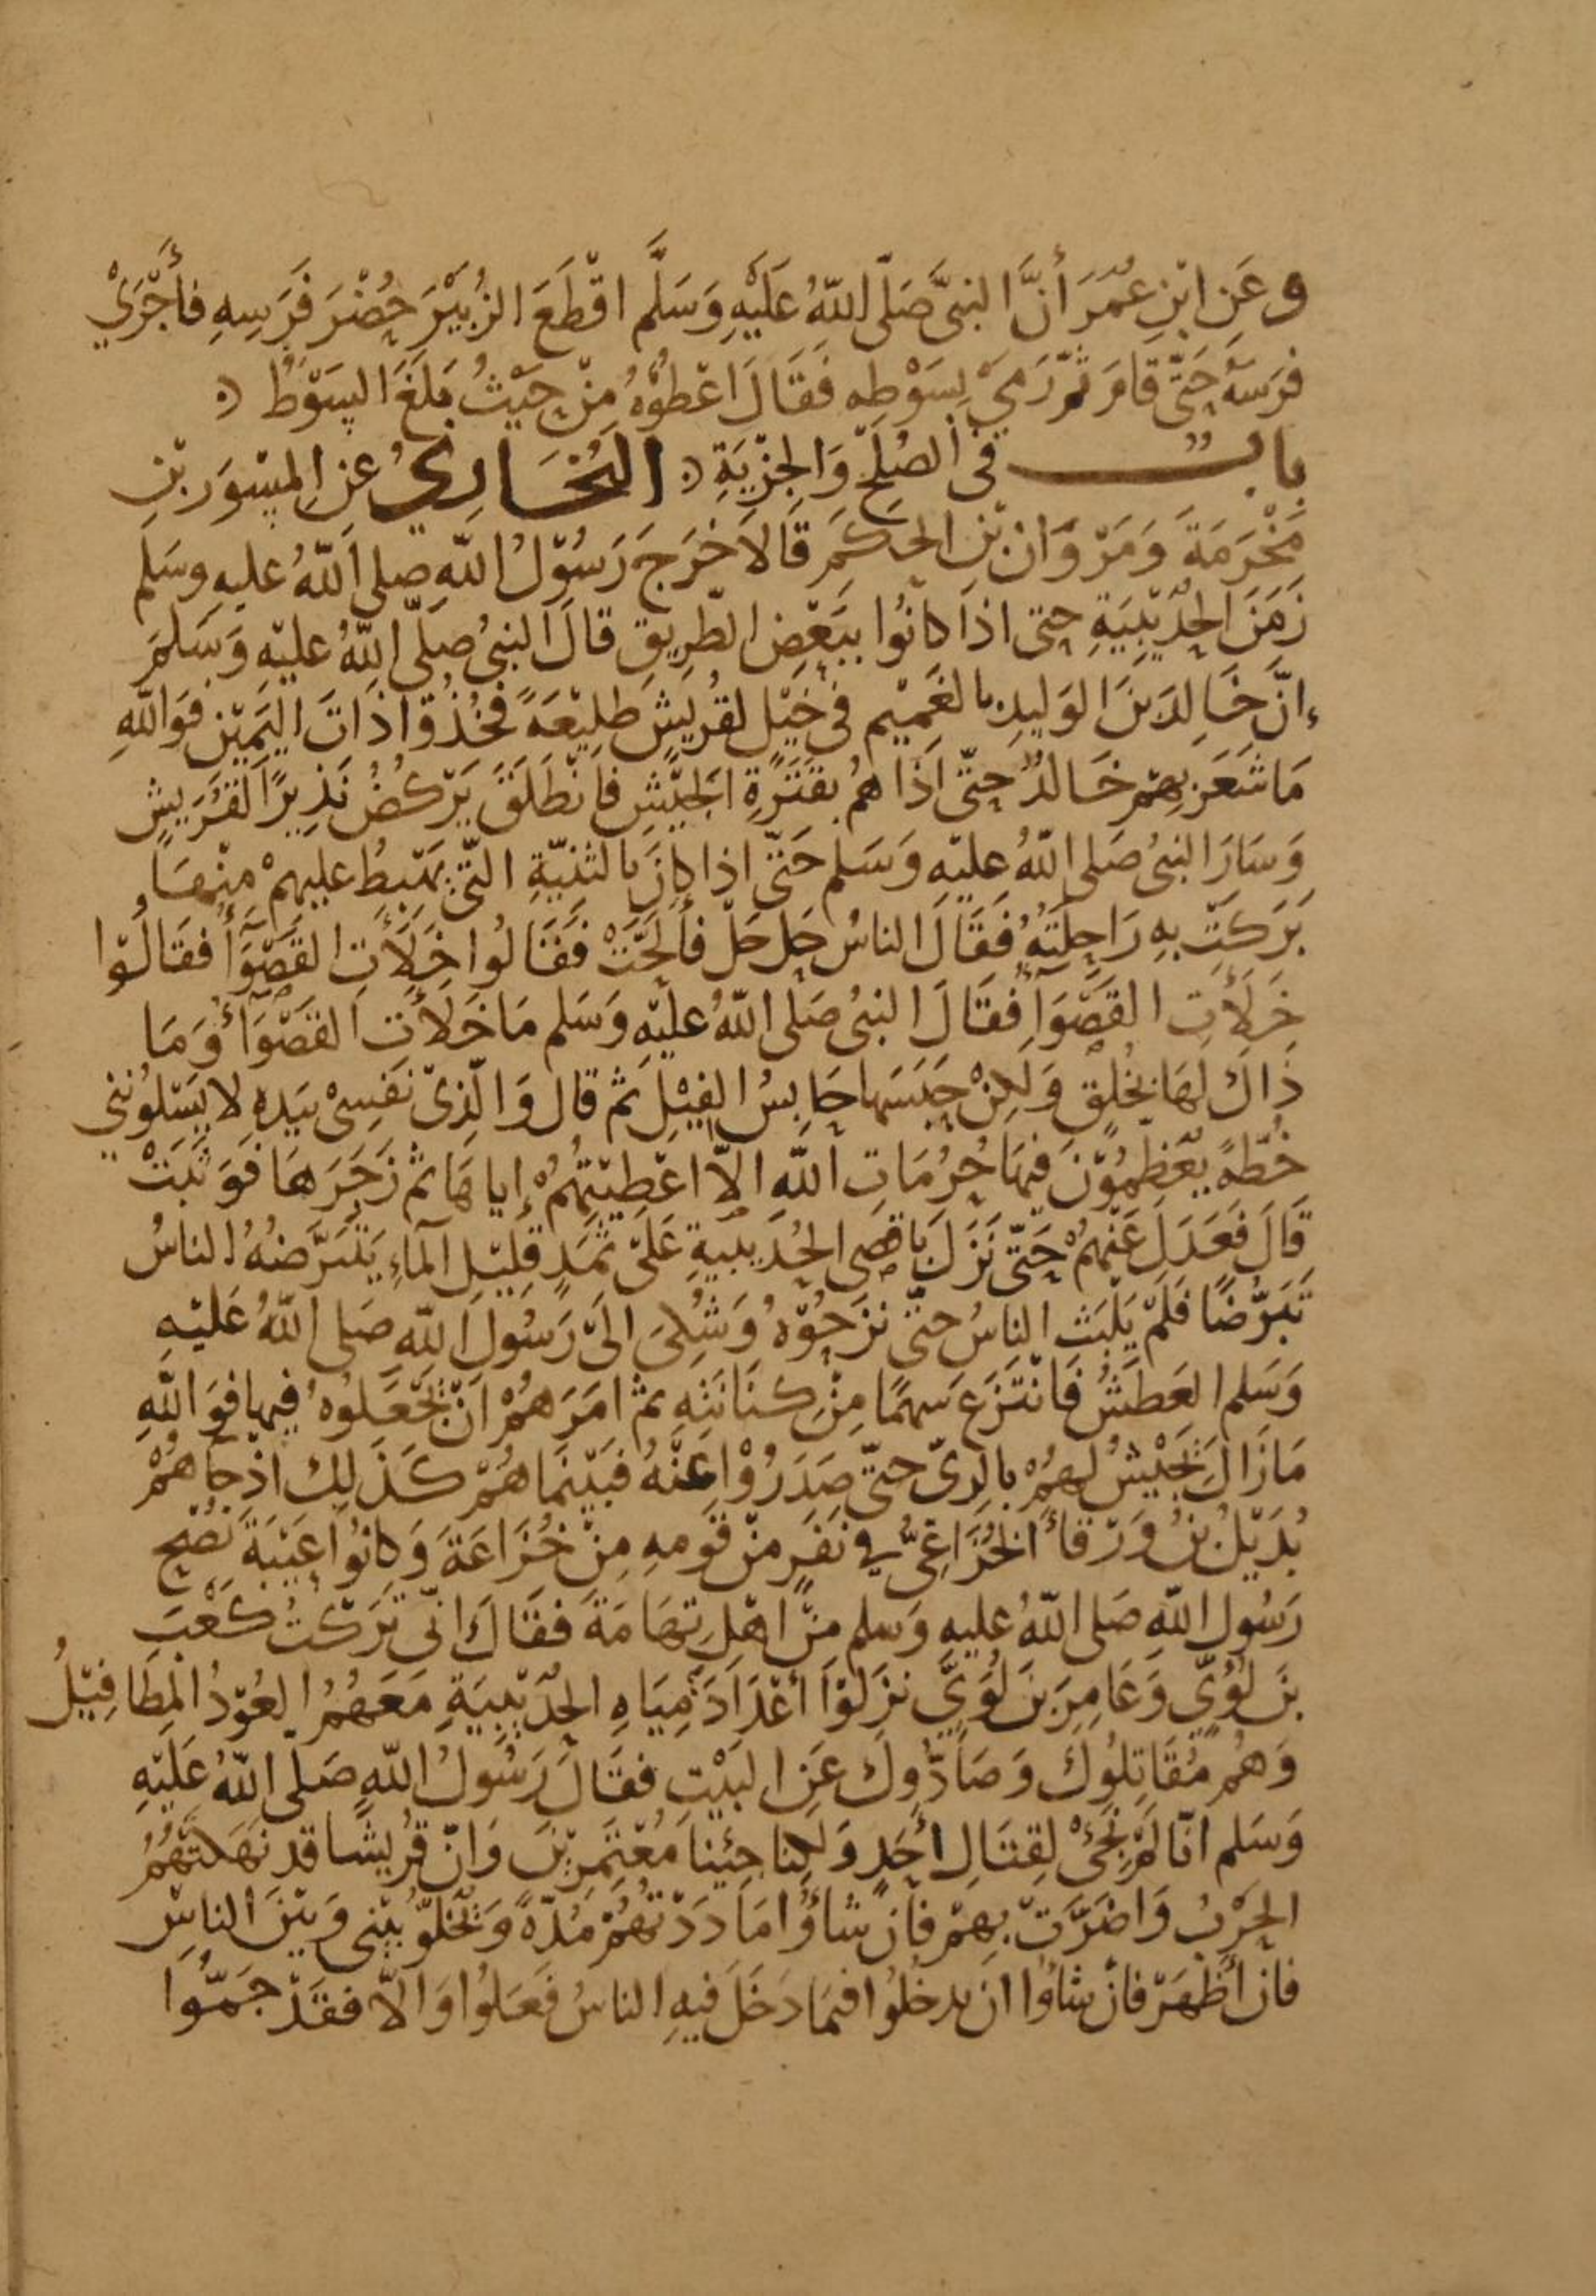 وعَنِ ابْنِ عُمَرَ أَنَّ النبىَّ صَلّى اللّهُ عَلَيْهِ وَسَلَّم اقْطَعَ الزُبَيْرَ حُضْرَ فَرَسِهِ فأَجْرَيْ
فَرَسَهُ حَتَّى قامَ ثمّ رَمَيْ بِسَوْطِهِ فَقَالَ اعْطُوْهُ مِنْ حَيْثُ بَلَغَ السَوْطُ
بابــــ فى الصُلْحِ وَالجِزْيَةِ البُخَارِيُ عنِ المِسْوَرِ بْنِ
مَخْرَمَةَ وَمَرْوَانَ بْنِ الحَكَمِ قَالاَ خَرَجَ رَسُوْلُ اللّهِ صلى اللّهُ عليه وسَلم
زَمَنَ الحُدَيْبِيَةِ حتى اذَا كانُوا بِبَعْضِ الطَرِيقِ قالَ النبىُ صَلّى اللّهُ عليْهِ وَسَلمَ
إنَّ خَالِدَ بنَ الوَلِيدِ بالغَمِيْمِ فى خَيْلٍ لقُرَيشٍ طَلِيْعَةً فَخُذُوْا ذَاتَ اليَمِيْنِ فوَاللّهِ
مَا شَعَرَ بِهِمْ خَالدٌ حتّى اذَا هُمْ بقَتَرَةِ الجَيْشِ فانْطَلَقَ يَرْكُضُ نَذِيرًا لقُرَيشٍ
وَسَارَ النبىُ صَلى اللّهُ عليْهِ وَسَلم حَتّى اذا كانَ بالثنيّةِ التّى يَهْبِطُ عليهمْ مِنْهَا
بَرَكَتْ بهِ رَاحِلَتُهُ فَقَالَ الناسُ حَل حَلْ فأَلحَّتْ فَقَالُوا خَلَأَتِ القَصْوَآءُ فقَالُوْا
خَلَأَتِ القَصْوَآءُ فقَالَ النبىُ صَلى اللّهُ عليْهِ وَسَلم مَا خَلَأَتِ القَصْوَآءُ وَمَا
ذَاكَ لَهَا بخُلُقٍ وَلكِنْ حَبَسَهَا حَابِسُ الفِيْلِ ثم قال وَالّذِىْ نَفسِىْ بيَدِهِ لا يَسْئلُوننِي
خُطّةً يُعَظِّمُوْنَ فِيهَا حُرُمَاتِ اللّهِ إلاّ اعْطيْتُهُمْ إياهَا ثم زَجَرَهَا فَوَثَبَتْ
قَالَ فَعَدَلَ عَنْهُمْ حَتّى نَزَلَ بَاقصَى الحُدَيبيةِ عَلىْ ثمَدٍ قلِيْلِ المآءِ يَتَبَرَّضهُ الناسُ
تَبَرُّضًا فَلَمْ يَلْبَثِ الناسُ حتّى نزَحُوْهُ وَشُكِىَ الىْ رَسُولِ اللّهِ صَلى اللّهُ عَليْهِ
وَسَلم العَطَشُ فَانْتَزَعَ سَهْمًا مِنْ كنَانَتِهِ ثم امَرَهمْ انْ يَجْعَلوُهُ فِيهَا فوَاللّهِ
مَازَالَ يَجيْشُ لهمُْ بالرىّ حتّى صَدَرُوْا عنْهُ فبَيْنَما همُْ كَذَلِكَ اذْ جَاهمُْ
بُدَيْلُ بنُ وَرْقاءَ الخُزَاعِىُّ في نَفَرٍ منْ قَومِهِ مِنْ خُزَاعَةَ وَكانُوا عَيْبَةَ نُصْحِ
رَسُول اللّهِ صَلى اللّهُ عليهِ وَسلم منْ اهْلِ تِهَامَةَ فقَالَ انّى تَرَكْتُ كَعْبَ
بنَ لُؤَىٍّ وَعَامِرَ بنَ لُؤَىٍّ نزَلُوْا أعْدَادَ مِيَاهِ الحُدَيْبِيَةِ مَعَهُمُ العُوْذُ المطَافِيْلُ
وَهُمْ مُقَاتِلُوكَ وَصَادُّوكَ عَنِ البَيْتِ فقَالَ رَسُولُ اللّهِ صَلى اللّهُ عَليْهِ
وَسَلم انّا لَمْ نَجئْ لِقتَالِ أحَدٍ وَلكِنا جئِنا مُعْتَمِرِيْنَ وَانّ قُرَيشًا قد نَهَكتْهُمُ
الحرْبُ وَاضَرَّتْ بِهِمْ فَانْ شاؤُا مَادَدْتُهُمْ مُدّةً وَيُخَلّوُْ بيْنى وَبيْنَ الناسِ
فان أظْهَرْ فانْ شاؤُا ان يدخلُوا فيمَا دَخَلَ فِيهِ الناسُ فَعَلُوا وَالاّ فقَدْ جَمُّوا